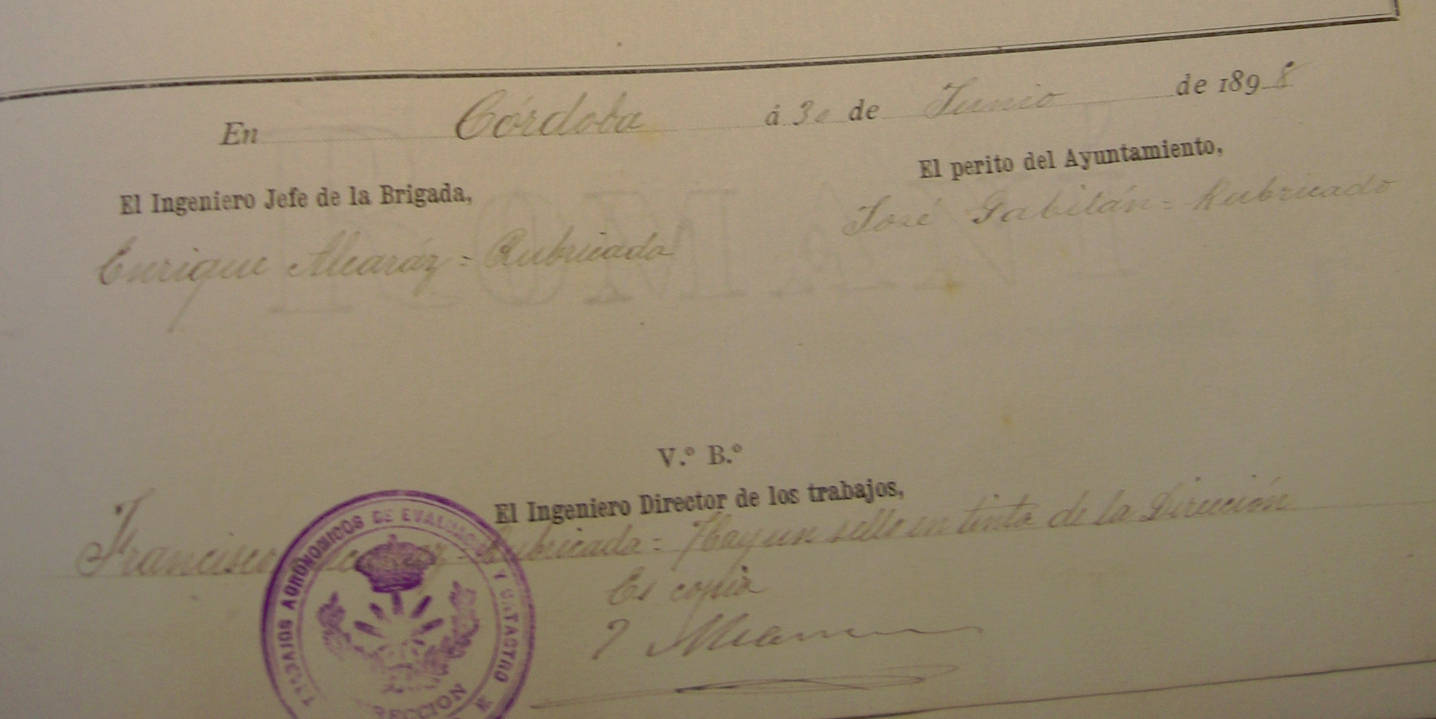 En Córdoba á 30 de Junio de 1898
El Ingeniero Jefe de la Brigada,
El perito del Ayuntamiento,
Enrique Alcaráz = Rubricada
José Gabilán = Rubricado
V.º B.º
El Ingeniero Director de los trabajos,
Francisco Rubricada = Hay un sello en tinta de la Dirección.
Es copia
TRABAJOS AGRONÓMICOS DE EVALUACION Y CATASTRO
DIRECCION